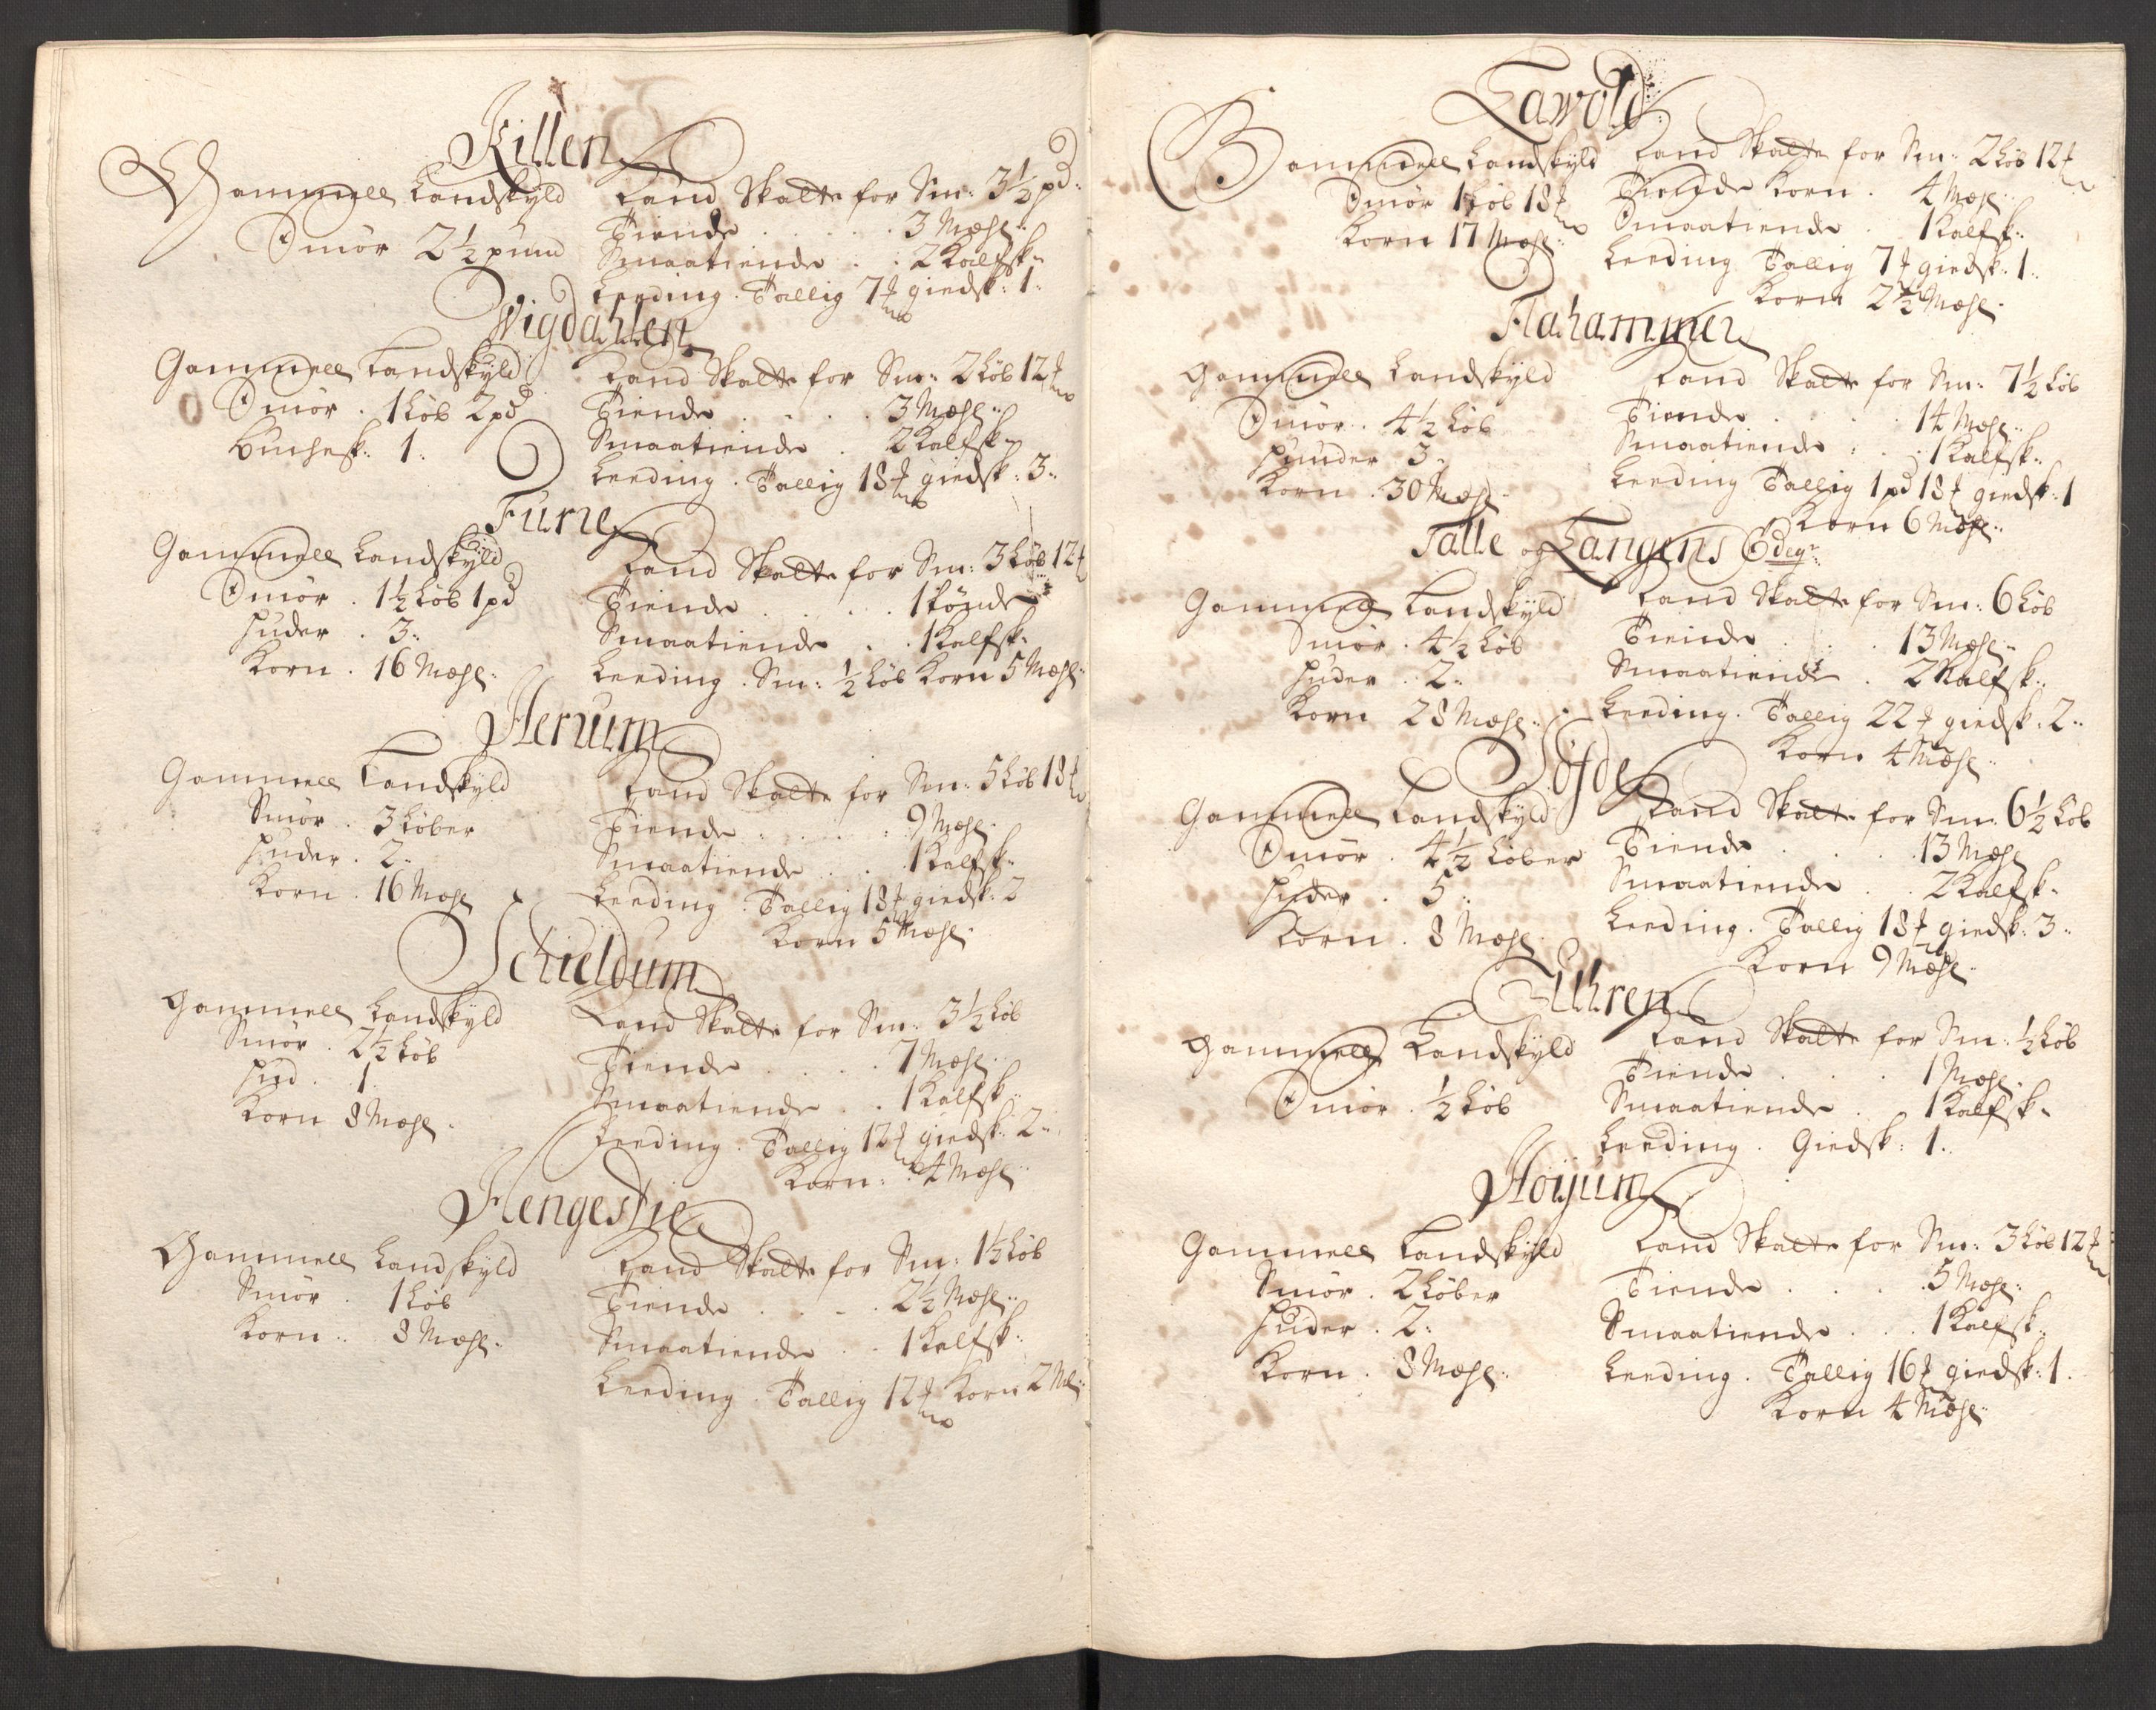 Killen
Gammell Landskyld
Smör 2½ pund
Land Skatte for Sm: 3½ pd:
Tiende . . . . 3 Mæhl:
Smaatiende . . 2 Kalfsk:
Leeding. Tallig 7 giedsk: 1:
Wigdahlen
Gammell Landskyld
Smör . 1 Löb 2 pd
Buchesk: 1:
Land Skatte for Sm: 2 Löb 12
Tiende . . . . 3 Mæhl:
Smaatiende . 2 Kalfsk:
Leeding. Tallig 18 giedsk: 3:
Furue
Gammell Landskyld
Smör . 1½ Löb 1 pd
Huder . 3:
Korn . 16 Mæhl:
Land Skatte for Sm: 3 Löb 12
Tiende . . . . 1 tönde
Smaatiende . . 1 Kalfsk:
Leeding. Sm: ½ Löb Korn 5 Mæhl:
Herum
Gammell Landskyld
Smör . 3 Löber
Huder . 2:
Korn . 16 Mæhl
Land Skatte for Sm: 5 Löb 18
Tiende . . . . 9 Mæhl:
Smaatiende . . 1 Kalfsk:
Leeding . Tallig 18 giedsk: 2
Korn 5 Mæhl:
Schieldum
Gammell Landskyld
Smör . 2½ Löb
Hud . 1
Korn 8 Mæhl.
Land Skatte for Sm: 3½ Löb
Tiende . . . . 7 Mæhl:
Smaatiende . . 1 Kalfsk:
Leeding. Tallig 12 giedsk: 2:
Korn: . 4 Mæhl:
Hengestie
Gammell Landskyld
Smör . 1 Löb
Korn . . 8 Mæhl:
Land Skatte for Sm: 1½ Löb
Tiende . . . . 2½ Mæhl:
Smaatiende . . 1 Kalfsk:
Leeding . Tallig 12 Korn 2 Ml:
Lawold
Gammell Landskyld
Smör 1 Löb 18
Korn 17 Mæhl:
Land Skatte for Sm: 2 Löb 12
Tiende Korn . 4 Mæhl:
Smaatiende . 1 Kalfsk:
Leeding Tallig 7 giedsk: 1:
Korn 2½ Mæhl:
Flahammer
Gammell Landskyld
Smör . 4½ Löb
Huuder 3:
Korn . 30 Mæhl:
Land Skatte for Sm: 7½ Löb
Tiende . . . 14 Mæhl:
Smaatiende . . 1 Kalfsk:
Leeding Tallig 1 pd 18 giedsk: 1
Korn 6 Mæhl:
Talle og Tangens Ödeg:
Gammell Landskyld
Smör . 4½ Löb
Huder . 2:
Korn 28 Mæhl:
Land Skatte for Sm: 6 Löb
Tiende . . . 13 Mæhl:
Smaatiende . 2 Kalfsk:
Leeding. Tallig 22 giedsk: 2:
Korn 4 Mæhl:
Söfde
Gammell Landskyld
Smör . 4½ Löber
Huder . 5:
Korn . 8 Mæhl
Land Skatte for Sm: 6½ Löb
Tiende . . . 13 Mæhl
Smaatiende . . 2 Kalfsk:
Leeding. Tallig 18 giedsk: 3:
Korn 9 Mæhl:
Uhren
Gammell Landskyld
Smör . ½ Löb
Land Skatte for Sm: ½ Löb
Tiende . . . 1 Mæhl:
Smaatiende . 1 Kalfsk:
Leeding . Giedsk: 1:
Höijum
Gammell Landskyld
Smör . 2 Löber
Huder . 2:
Korn . 8 Mæhl:
Land Skatte for Sm: 3 Löb 12
Tiende . . . 5 Mæhl:
Smaatiende . . 1 Kalfsk:
Leeding . Tallig 16 giedsk: 1.
Korn 4 Mæhl: